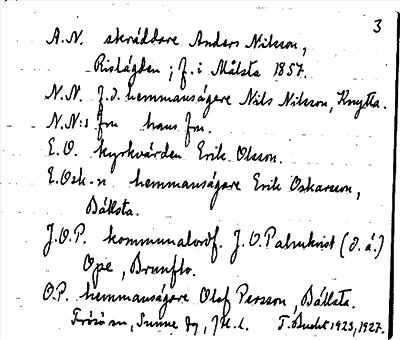 3
A.N. skräddare Anders Nilsson,
Rislägden; f. i Målsta 1857.
N.N. f.d. hemmansägare Nils Nilsson, Knytta.
N.N:s fru hans fru.
E.O. kyrkvärden Erik Olsson.
E.Osk-n hemmansägare Erik Oskarsson,
Bällsta.
J.O.P. kommunalordf. J.O. Palmkvist (d.ä.)
Ope, Brunflo.
O.P. hemmansägare Olof Persson, Bällsta.
Frösö sn, Sunne tg, J.l. 1923, 1927.